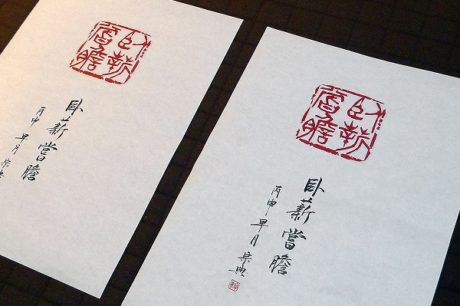 臥薪
嘗膽
臥薪嘗膽
丙申 早月
臥薪
嘗膽
臥薪嘗膽
丙申 早月